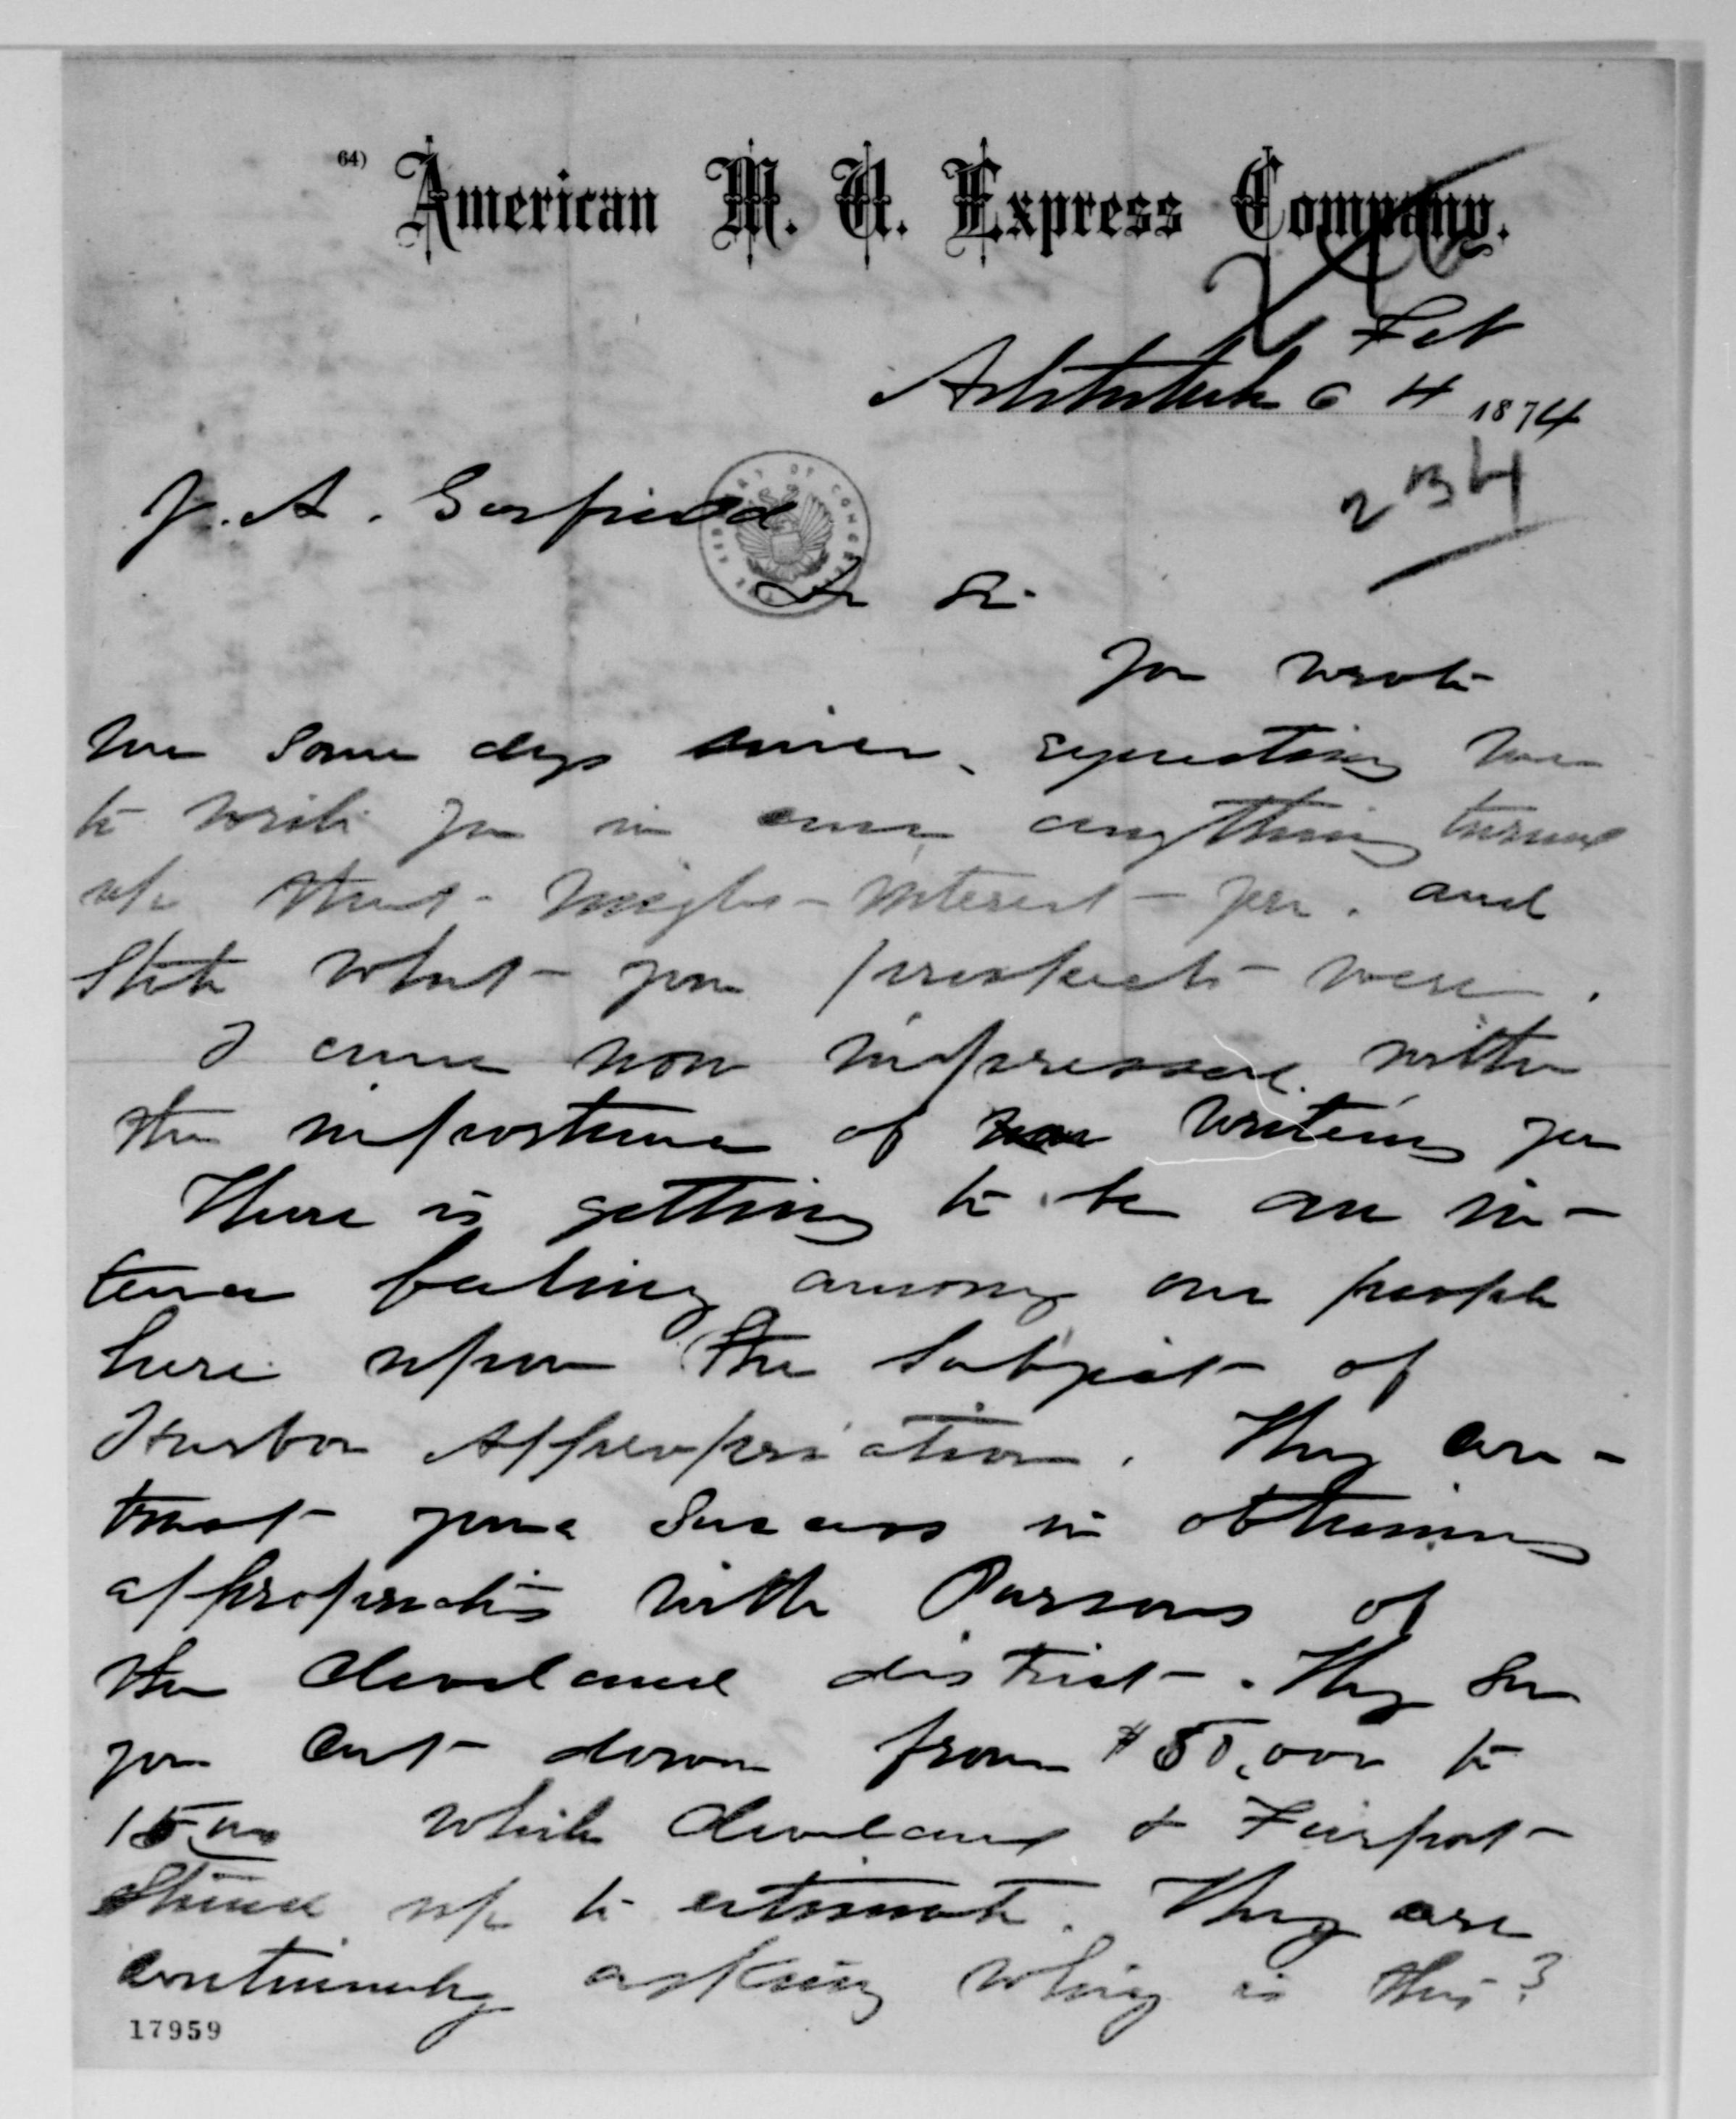 64)
American M. U. Express Company.
Feb
Ashtabula O 4 1874
234
J. A. Garfield
LIBRARY OF CONGRESS
Dr Sir
You wrote
me some days since, requesting me
to write you in case anything turned
up that might interest you. and
State what your prospects were.
I am now impressed with
the importance of writing you
There is getting to be an in-
tense feeling among our people
here upon the Subject of
Harbor Appropriation. They con-
trast your Success in obtaining
appropriations with Parsons of
the Cleveland district. They See
you Cut down from $50,000 to
15,000 while Cleveland & Fairport
Stand up to estimate. They are
continually asking why is this?
17959